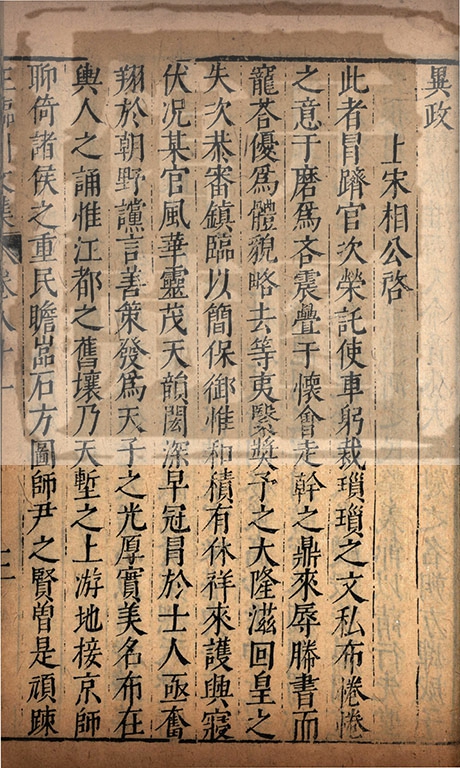 異政
上宋相公啓
此者冒躋官次榮託使車躬裁瑣瑣之文私布惓惓
之意于磨爲吝震疊于懷曾走幹之鼎來辱勝書而
寵荅優爲體貌略去等夷緊奬予之大隆滋回皇之
失次恭審鎮臨以簡保御惟和積有休祥來護興寢
伏况某官風華靈茂天韻閎深早冠冑於士人亟奮
翔於朝野讜言善策發爲天子之光厚實美名布在
輿人之誦惟江都之舊壤乃天塹之上游地接京師
聊倚諸侯之重民瞻嵓石方圖師尹之賢曽是頑踈
王臨川文集 卷八十一